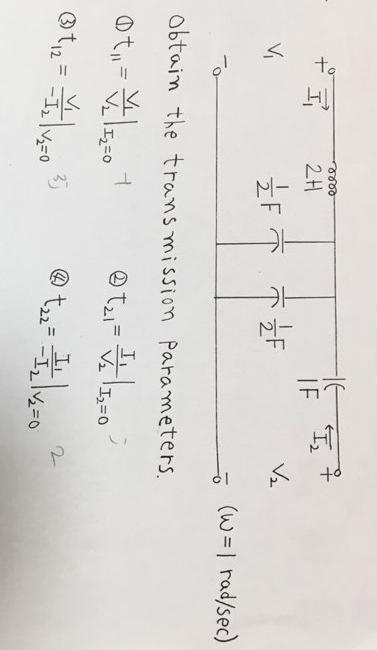 + I₁ 2H 1F I₂ +
V₁ ½F ½F V₂
- - (W=1 rad/sec)
Obtain the transmission parameters.
① t₁₁ = V₁/V₂ | I₂=0 ② t₂₁ = I₁/V₂ | I₂=0
③ t₁₂ = V₁/-I₂ | V₂=0 3j ④ t₂₂ = I₁/-I₂ | V₂=0 2